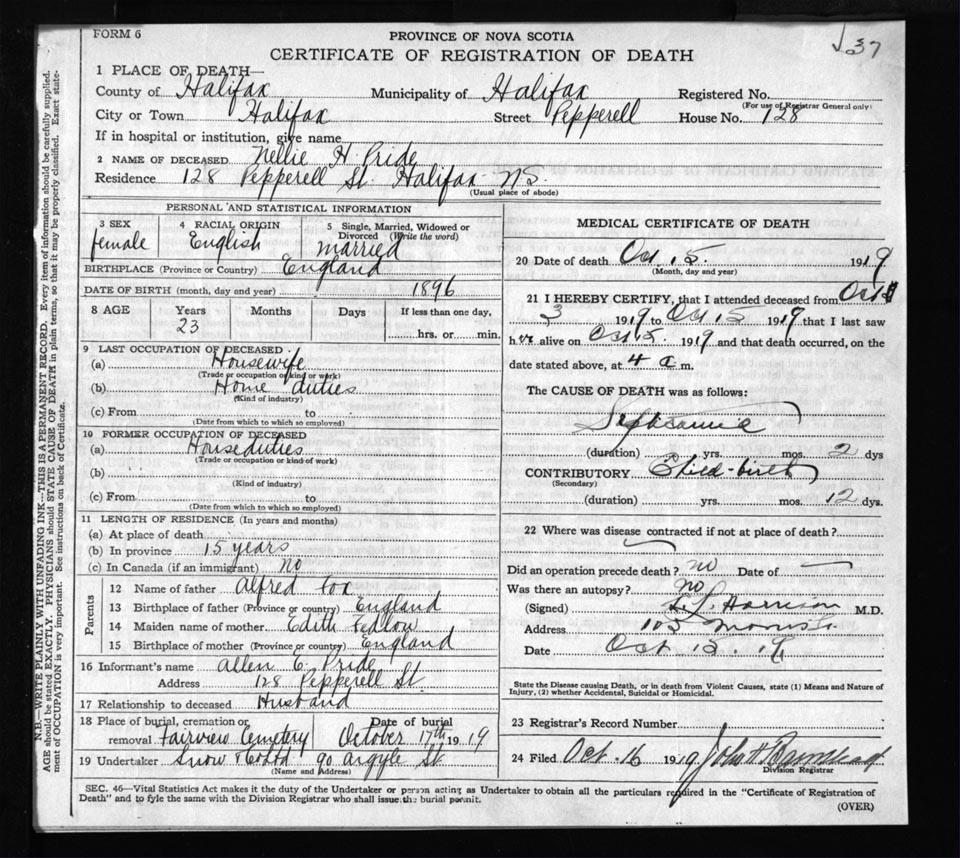 FORM 6
PROVINCE OF NOVA SCOTIA
CERTIFICATE OF REGISTRATION OF DEATH
37
1 PLACE OF DEATH—
County of Halifax Municipality of Halifax Registered No.
(For use of Registrar General only)
City or Town Halifax Street Pepperell House No. 128
If in hospital or institution, give name
2 NAME OF DECEASED Nellie H Pride
Residence 128 Pepperell St. Halifax N.S.
(Usual place of abode)
PERSONAL AND STATISTICAL INFORMATION
3 SEX female
4 RACIAL ORIGIN English
5 Single, Married, Widowed or Divorced (Write the word) married
BIRTHPLACE (Province or Country) England
DATE OF BIRTH (month, day and year) 1896
8 AGE Years Months Days If less than one day,
23 hrs. or min.
9 LAST OCCUPATION OF DECEASED
(a) Housewife
(Trade or occupation or kind of work)
(b) Home duties
(Kind of industry)
(c) From to
(Date from which to so employed)
10 FORMER OCCUPATION OF DECEASED
(a) House duties
(Trade or occupation or kind of work)
(b)
(Kind of industry)
(c) From to
(Date from which to so employed)
11 LENGTH OF RESIDENCE (In years and months)
(a) At place of death
(b) In province 15 years
(c) In Canada (if an immigrant) No
Parents
12 Name of father Alfred Fox
13 Birthplace of father (Province or country) England
14 Maiden name of mother Edith
15 Birthplace of mother (Province or country) England
16 Informant's name Allen C. Pride
Address 128 Pepperell St.
17 Relationship to deceased Husband
18 Place of burial, cremation or removal Fairview Cemetery
Date of burial October 17th 1919
19 Undertaker Snow & Co Ltd 90 Argyle St
(Name and Address)
MEDICAL CERTIFICATE OF DEATH
20 Date of death Oct. 15. 1919
(Month, day and year)
21 I HEREBY CERTIFY, that I attended deceased from Oct
3 1919 to Oct 15 1919 that I last saw
her alive on Oct 15. 1919 and that death occurred, on the
date stated above, at 4 a m.
The CAUSE OF DEATH was as follows:
Septicaemia
(duration) yrs. mos. 2 dys
CONTRIBUTORY Child-birth
(Secondary)
(duration) yrs. mos. 12 dys.
22 Where was disease contracted if not at place of death?
Did an operation precede death? no Date of —
Was there an autopsy? no
(Signed) Harrison M.D.
Address 105 Morris St.
Date Oct 15. 19
State the Disease causing Death, or in death from Violent Causes, state (1) Means and Nature of
Injury, (2) whether Accidental, Suicidal or Homicidal.
23 Registrar's Record Number
24 Filed Oct. 16 1919 John H
Division Registrar
SEC. 46—Vital Statistics Act makes it the duty of the Undertaker or person acting as Undertaker to obtain all the particulars required in the "Certificate of Registration of
Death" and to fyle the same with the Division Registrar who shall issue the burial permit.
(OVER)
N.B.—WRITE PLAINLY WITH UNFADING INK—THIS IS A PERMANENT RECORD. Every item of information should be carefully supplied.
AGE should be stated EXACTLY. PHYSICIANS should STATE CAUSE OF DEATH in plain terms, so that it may be properly classified. Exact state-
ment of OCCUPATION is very important. See instructions on back of Certificate.